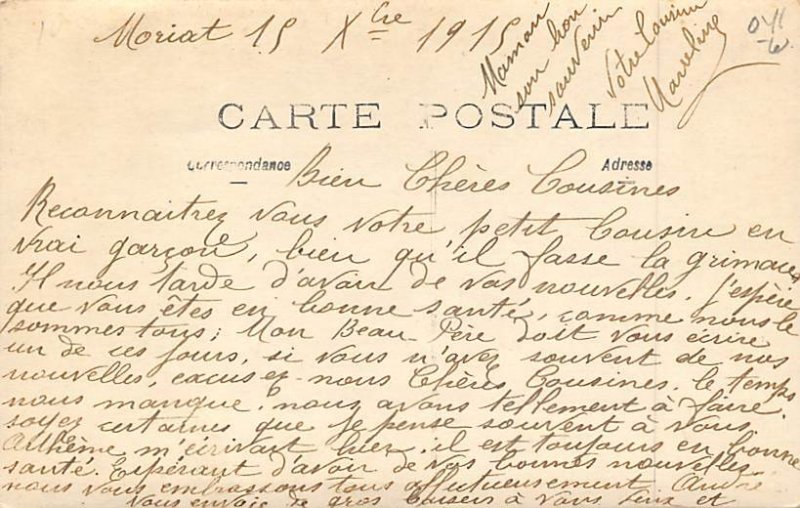 Moriat 15 Xbre 1915
CARTE POSTALE
Correspondance
Adresse
Bien Chères Cousines
Reconnaitrez vous votre petit Cousin en
vrai garçon, bien qu'il fasse la grimace,
Il nous tarde d'avoir de vos nouvelles. J'espère
que vous êtes en bonne santé, comme nous le
sommes tous; Mon Beau-Père doit vous écrire
un de ces jours, si vous n'avez souvent de nos
nouvelles, excusez-nous Chères Cousines, le temps
nous manque, nous avons tellement à faire.
soyez certaines que je pense souvent à vous.
Anthème m'écrivait hier, il est toujours en bonne
santé. Espérant d'avoir de vos bonnes nouvelles
nous vous embrassons tous affectueusement. André
vous envoie de gros baisers à vous deux et
Maman
son bon
souvenir
Votre Cousine